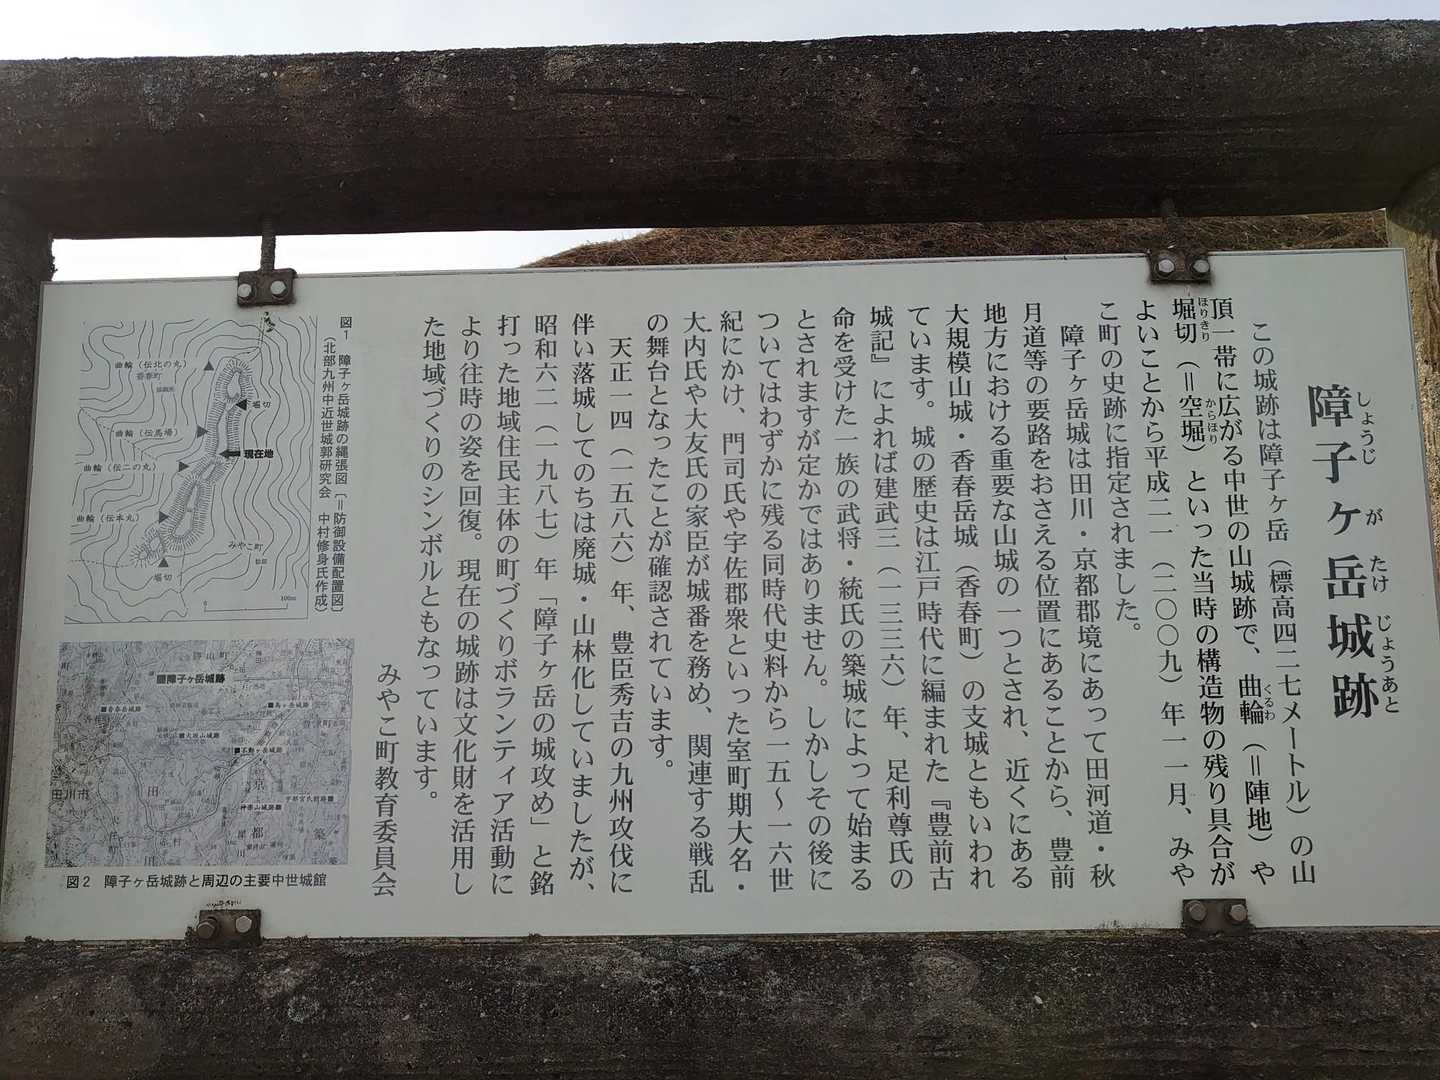 障子ヶ岳城跡
しょうじ が たけ じょうあと
この城跡は障子ヶ岳（標高四二七メートル）の山
頂一帯に広がる中世の山城跡で、曲輪（＝陣地）や
くるわ
堀切（＝空堀）といった当時の構造物の残り具合が
ほりきり からほり
よいことから平成二一（二〇〇九）年一一月、みや
こ町の史跡に指定されました。
障子ヶ岳城は田川・京都郡境にあって田河道・秋
月道等の要路をおさえる位置にあることから、豊前
地方における重要な山城の一つとされ、近くにある
大規模山城・香春岳城（香春町）の支城ともいわれ
ています。城の歴史は江戸時代に編まれた『豊前古
城記』によれば建武三（一三三六）年、足利尊氏の
命を受けた一族の武将・統氏の築城によって始まる
とされますが定かではありません。しかしその後に
ついてはわずかに残る同時代史料から一五～一六世
紀にかけ、門司氏や宇佐郡衆といった室町期大名・
大内氏や大友氏の家臣が城番を務め、関連する戦乱
の舞台となったことが確認されています。
天正一四（一五八六）年、豊臣秀吉の九州攻伐に
伴い落城してのちは廃城・山林化していましたが、
昭和六二（一九八七）年「障子ヶ岳の城攻め」と銘
打った地域住民主体の町づくりボランティア活動に
より往時の姿を回復。現在の城跡は文化財を活用し
た地域づくりのシンボルともなっています。
みやこ町教育委員会
図1 障子ヶ岳城跡の縄張図（＝防御設備配置図）
（北部九州中近世城郭研究会 中村修身氏作成）
曲輪（伝北の丸）
香春町
堀切
曲輪（伝馬場）
現在地
曲輪（伝二の丸）
曲輪（伝本丸）
みやこ町
堀切
0 100m
障子ヶ岳城跡
香春岳城跡
馬ヶ岳城跡
大坂山城跡
不動ヶ岳城跡
宇都宮氏館跡
神楽山城跡
田川市
図2 障子ヶ岳城跡と周辺の主要中世城館